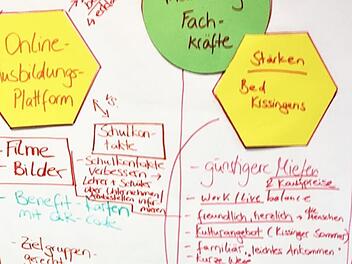 Online-
Ausbildungs-
Plattform
Fach-
kräfte
Stärken
Bad
Kissingens
Schulkon-
takte
- Filme
- Bilder
- Schulkontakte
verbessern →
Lehrer + Schüler
über Unternehmen/
infor-
minieren
- Benefit-Karten
mit QR-Code
- Zielgruppen-
gerecht
- günstigere Mieten
& Kaufpreise
- Work/Live balance
- freundlich, herzlich → die Menschen
- Kulturangebot (Kissinger Sommer)
- familiär, leichtes Ankommen
- kurze Wege